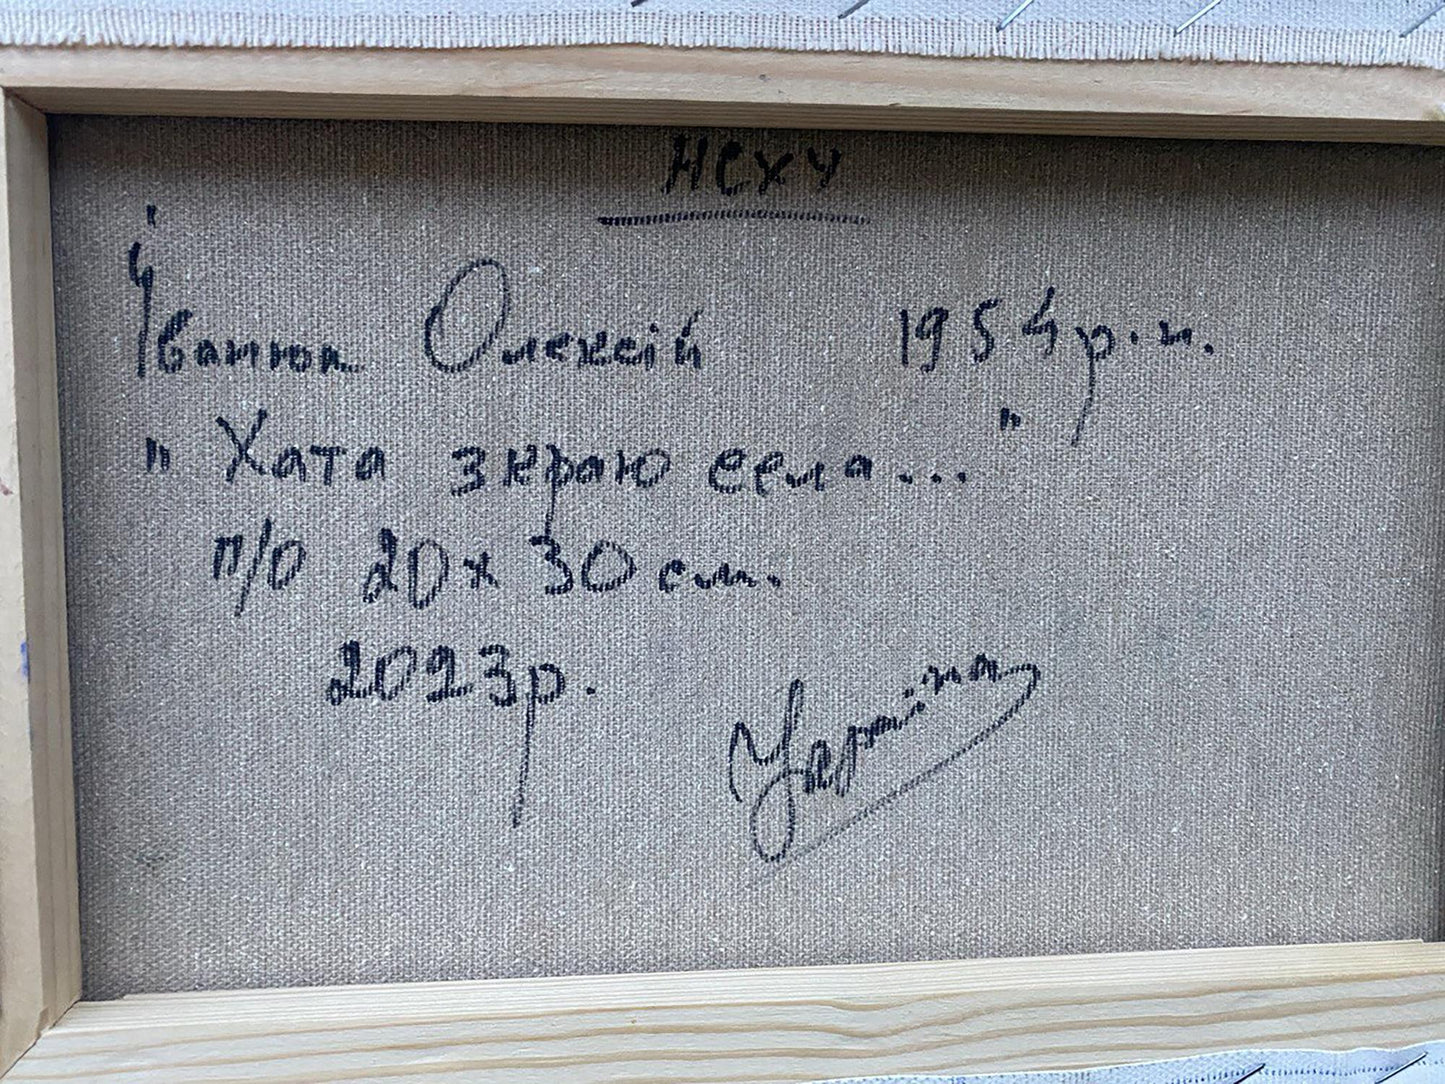 НСХУ
Іванюк Олексій 1954 р.н.
"Хата з краю села..."
п/о 20х30 см.
2023р.
Україна